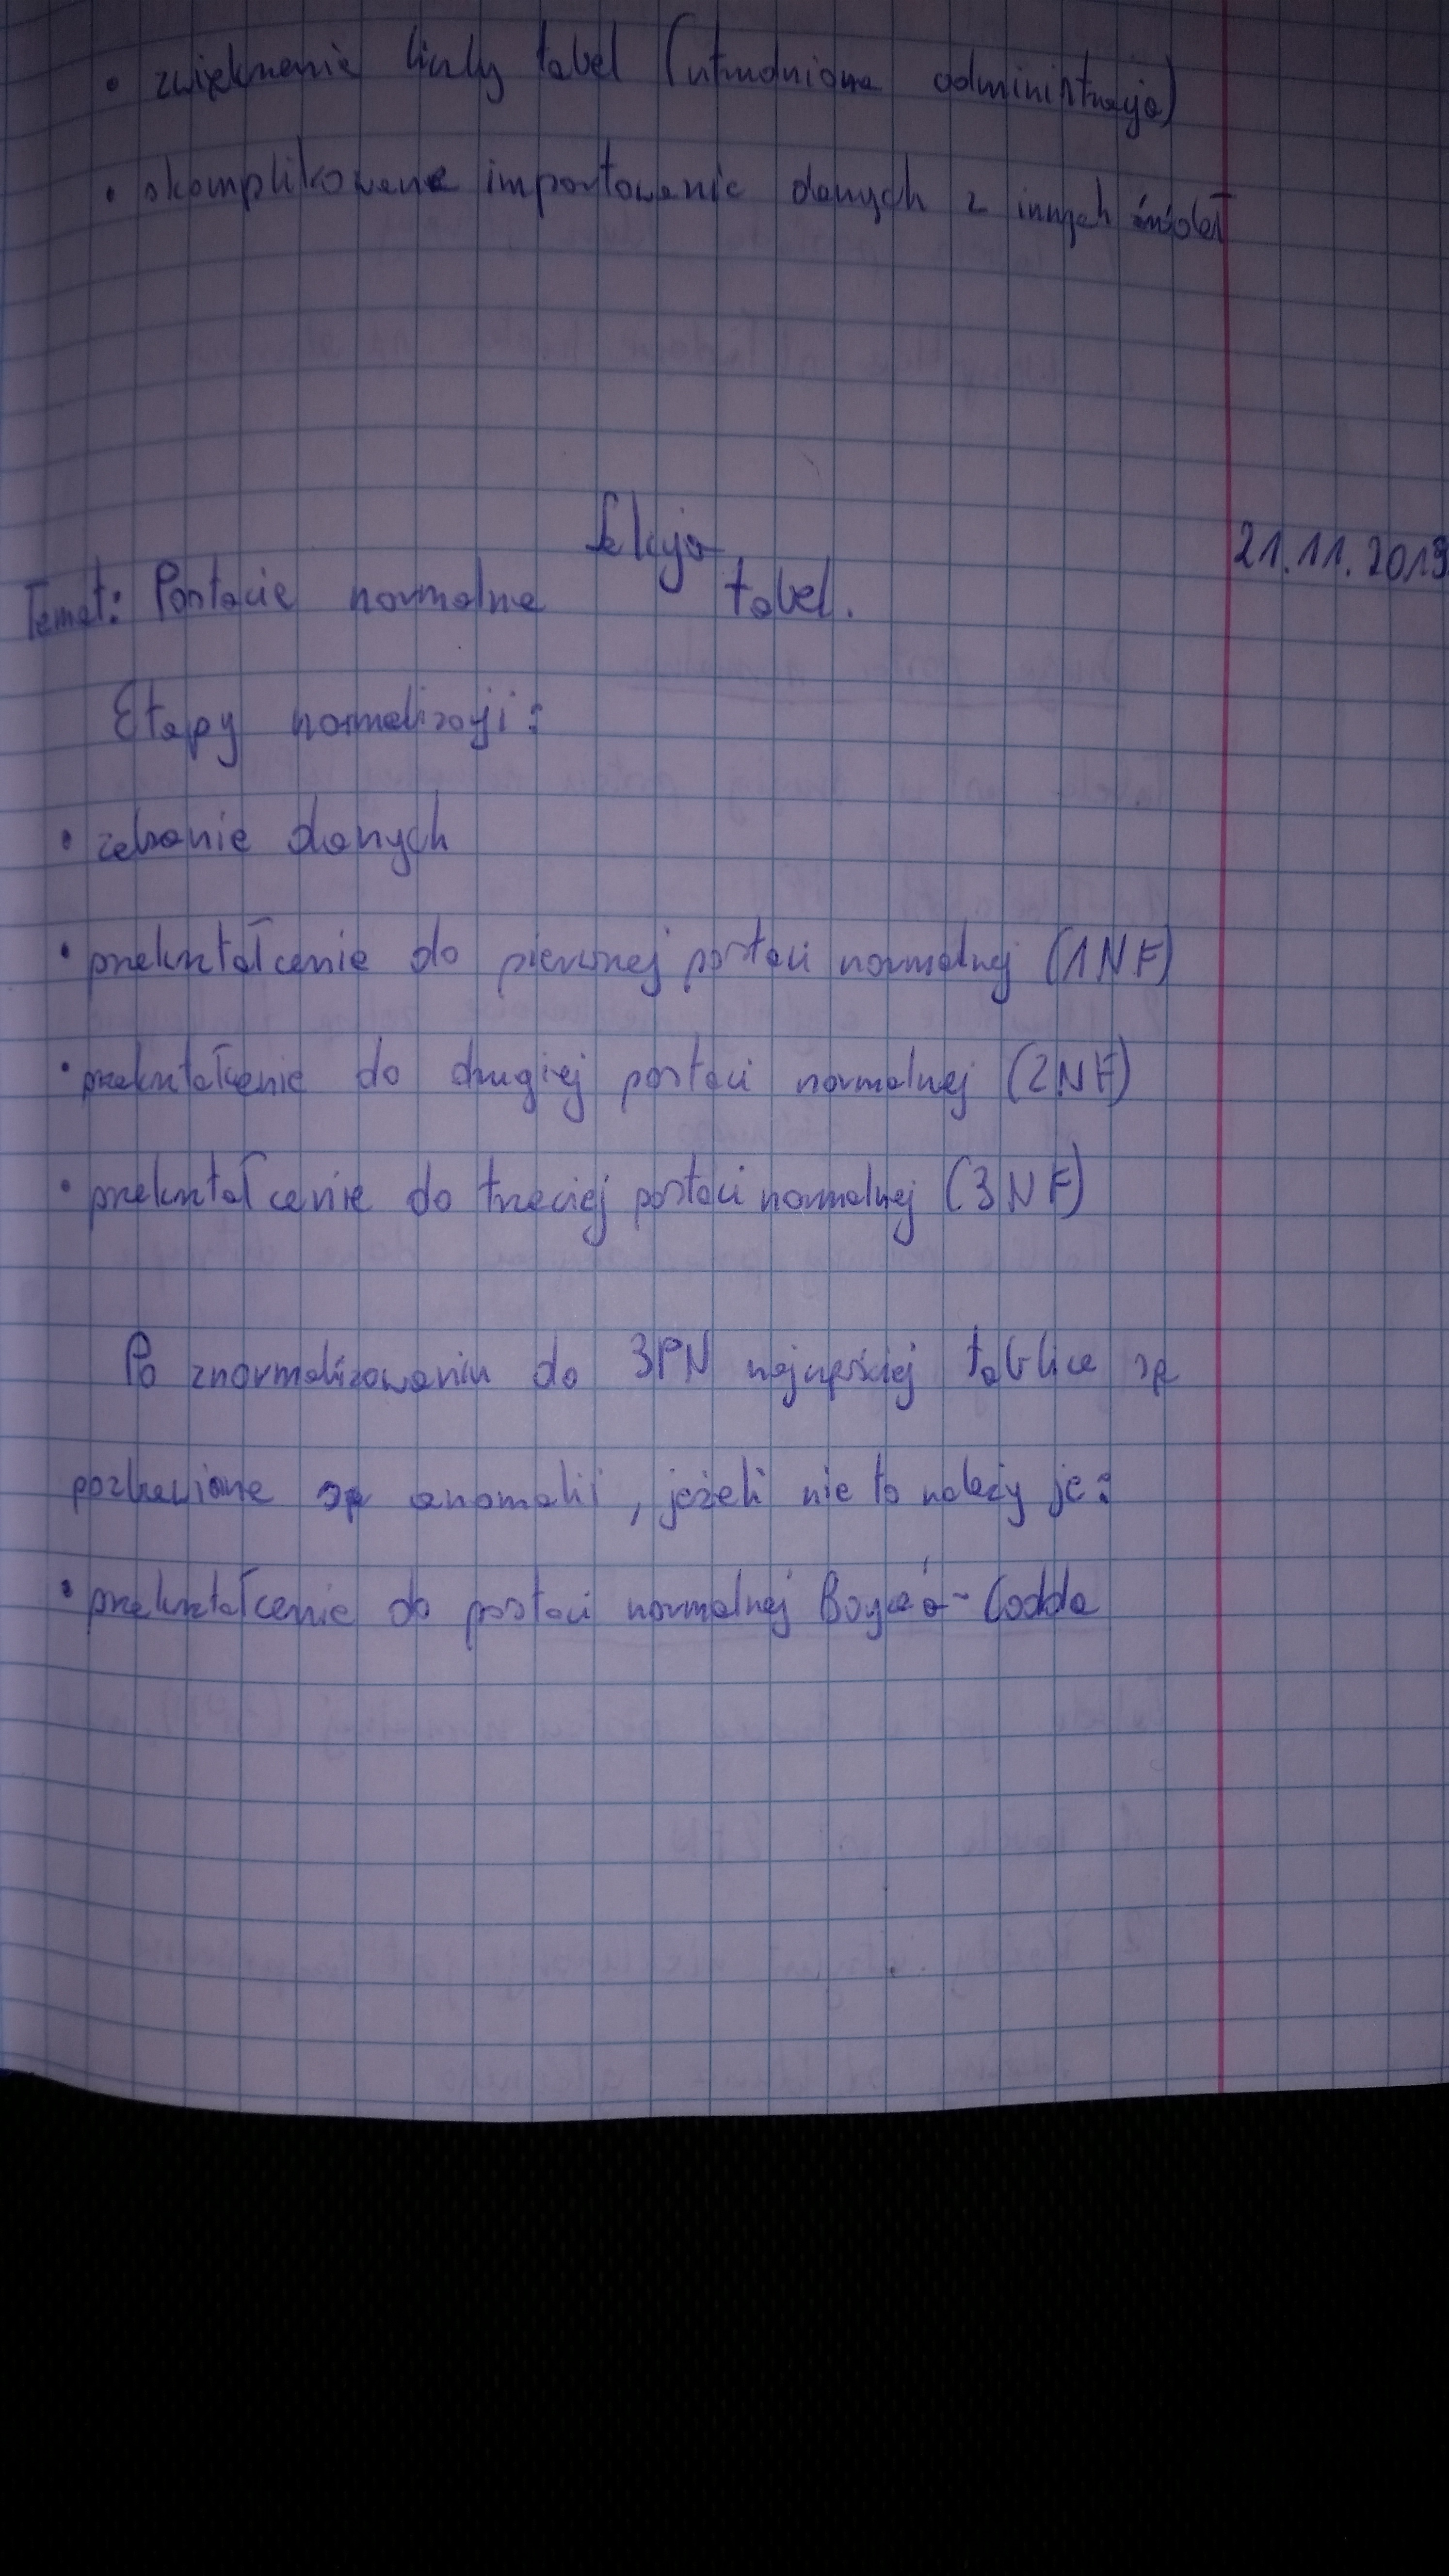 • zwiększenie liczby tabel (utrudniona administracja)
• skomplikowane importowanie danych z innych źródeł
Lekcja 21.11.2019
Temat: Postacie normalne tabel.
Etapy normalizacji:
• zebranie danych
• przekształcenie do pierwszej postaci normalnej (1NF)
• przekształcenie do drugiej postaci normalnej (2NF)
• przekształcenie do trzeciej postaci normalnej (3NF)
Po znormalizowaniu do 3PN najczęściej tablice są
pozbawione anomalii, jeżeli nie to należy je:
• przekształcenie do postaci normalnej Boyce'a-Codda